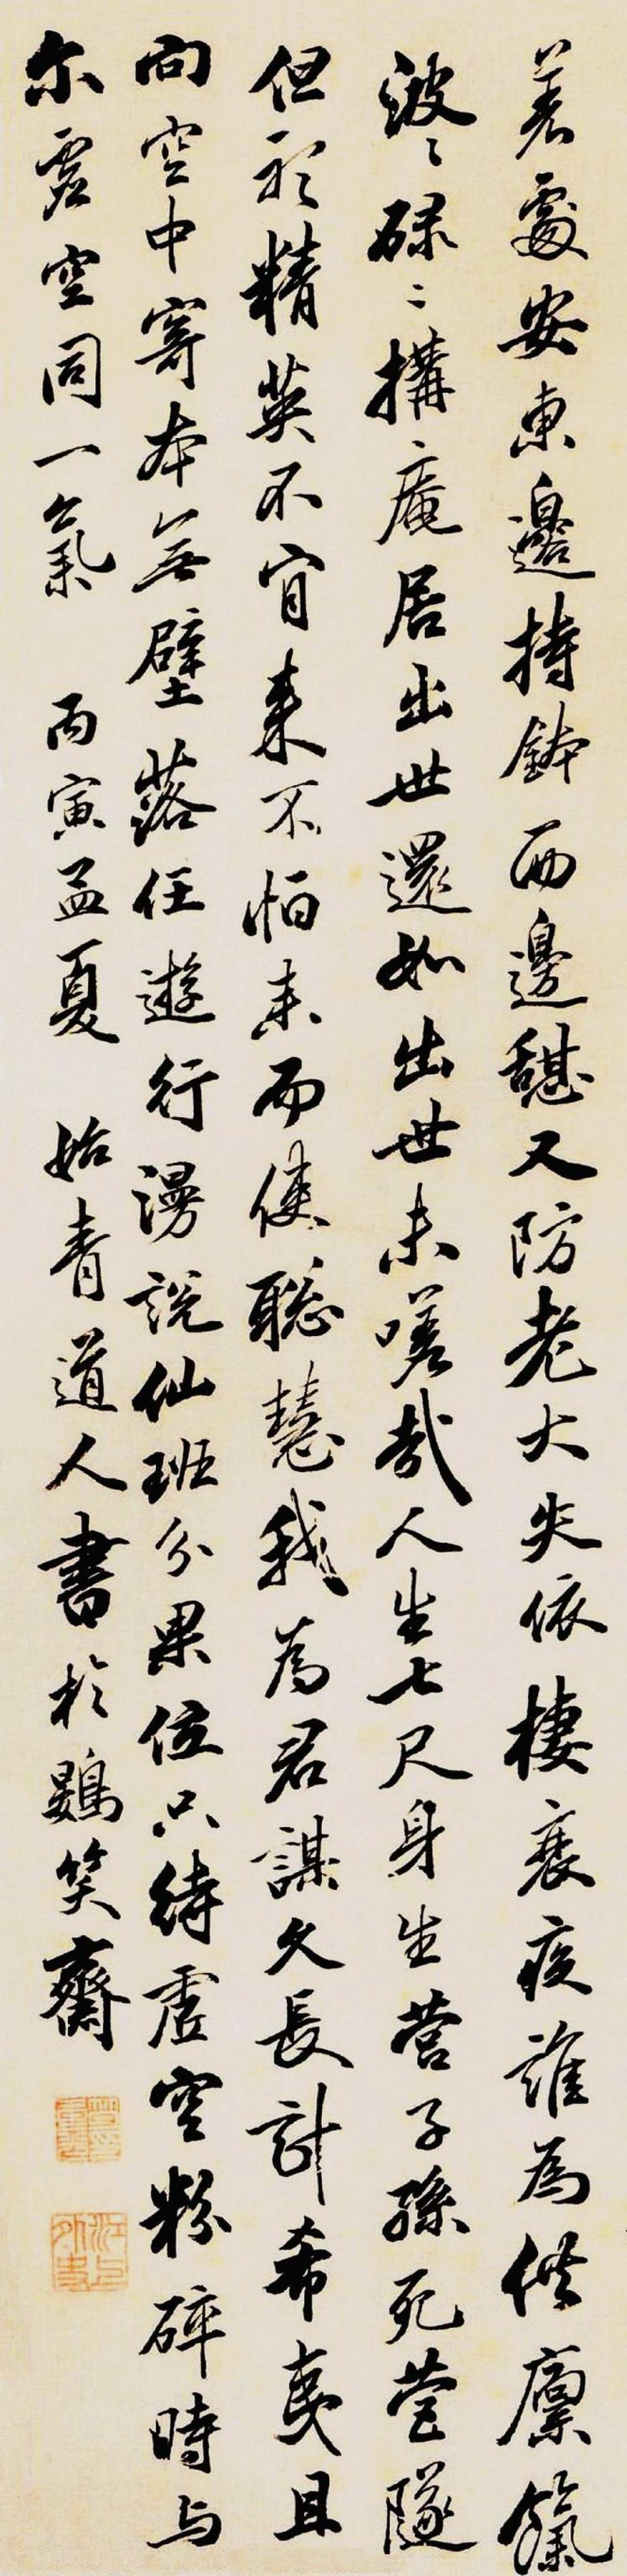 著處安東邊持鉢西邊憇又防老大失依棲衰疾誰為供廩餼
波〻碌〻搆庵居出世還如出世未嗟哉人生七尺身生營子孫死塋隧
但形精英不肯來不怕未而使聡慧我為君謀久長計希夷且
向空中寄本無壁落任遊行漫說仙班分果位只待虛空粉碎時与
尔虛空同一氣 丙寅孟夏 始青道人書於鷃笑齋
江上外史